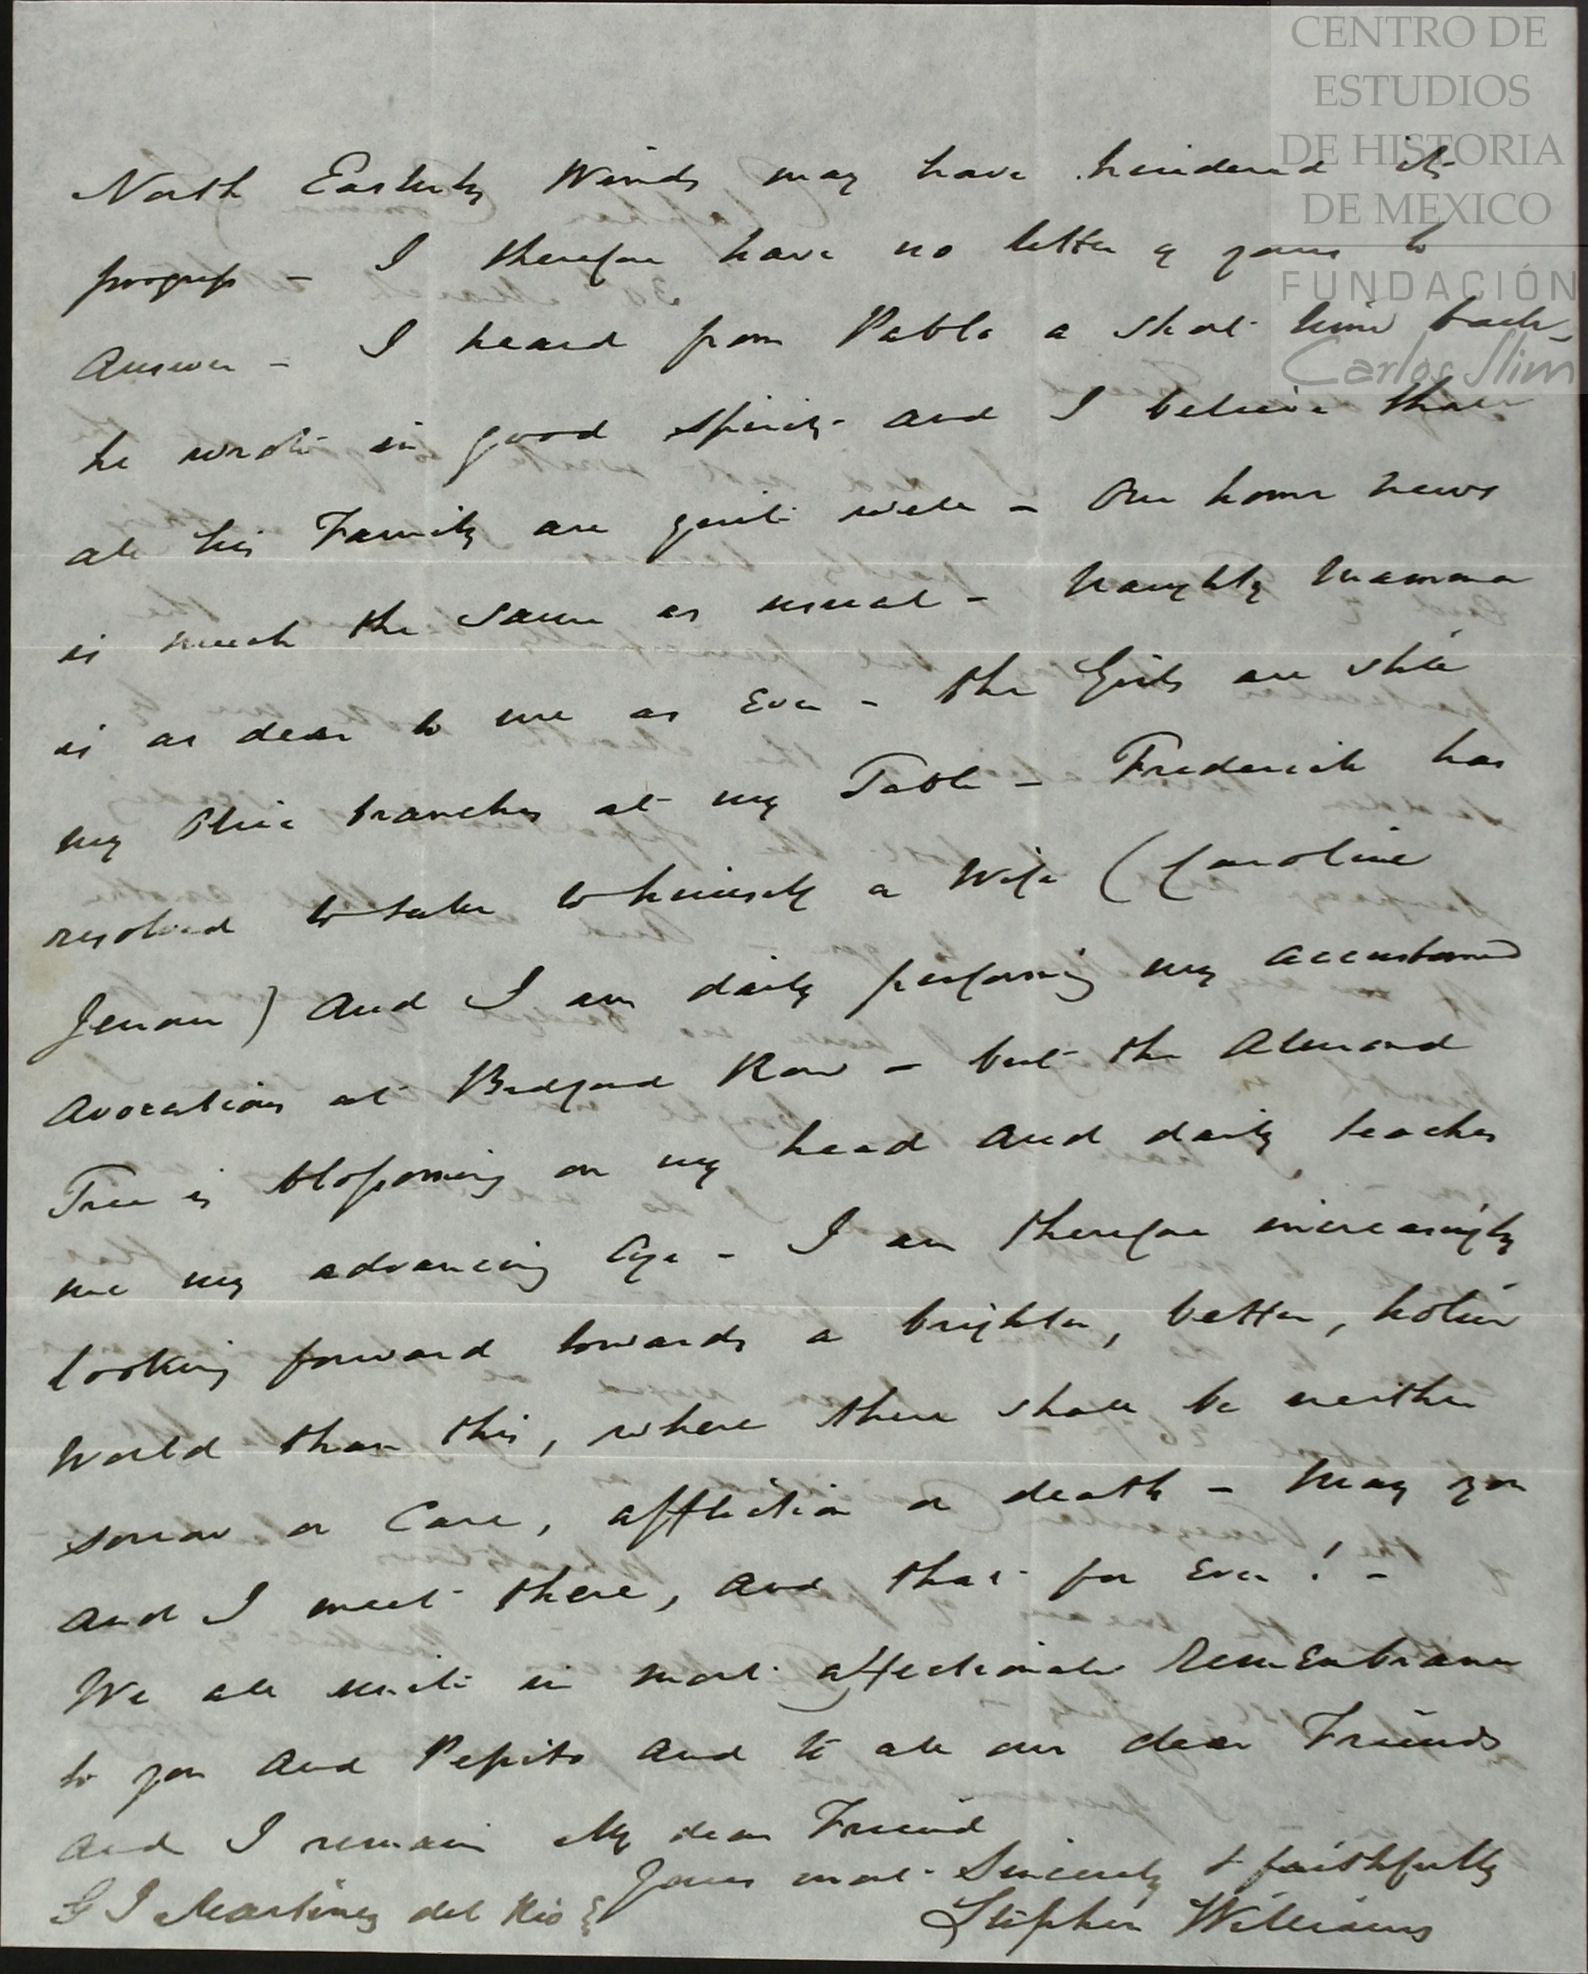 CENTRO DE
ESTUDIOS
DE HISTORIA
DE MEXICO
FUNDACIÓN
Carlos Slim
North Easterly Winds may have hindered its
progress - I therefore have no letter of yours to
answer - I heard from Pablo a short time back
he wrote in good spirits and I believe that
all his Family are quite well - Our home news
is much the same as usual - Naughty Mamma
is as dear to me as Ever - the Girls are still
my Olive branches at my Table - Frederick has
resolved to take to himself a Wife (Caroline
) and I am daily performing my accustomed
avocations at Bedford Row - but the Almond
Tree is blossoming on my head and daily teaches
me my advancing Age - I am therefore increasingly
looking forward towards a brighter, better, holier
World than this, where there shall be neither
sorrow or Care, affliction or death - May you
and I meet there, and that for Ever! -
We all unite in most affectionate Remembrance
to you and Pepito and to all our dear Friends
and I remain My dear Friend
Yours most Sincerely & faithfully
Stephen Williams
G J Martinez del Rio